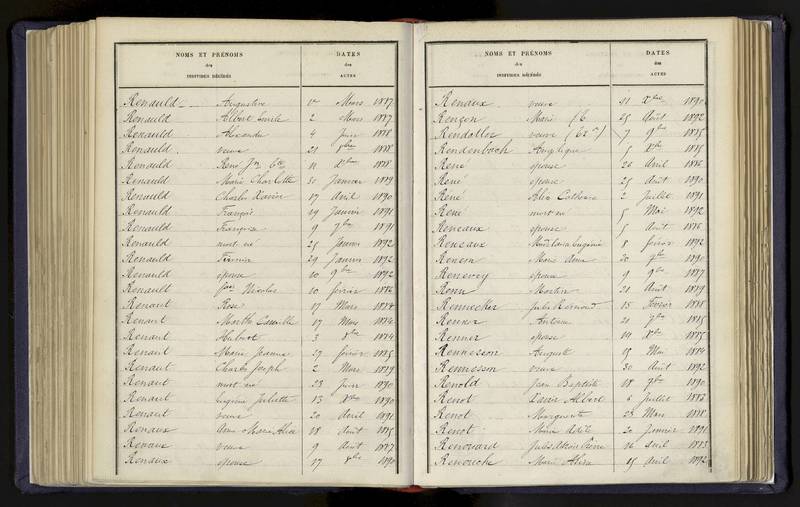 NOMS ET PRÉNOMS
des
INDIVIDUS DÉCÉDÉS
DATES
des
ACTES
Renauld Augustine 1er Mars 1887
Renauld Albert Emile 2 Mars 1887
Renauld Alexandre 4 Juin 1888
Renauld veuve 21 8bre 1888
Renauld René 11 Xbre 1888
Renauld Marie Charlotte 30 Janvier 1889
Renauld Charles Xavier 17 avril 1890
Renauld François 19 Janvier 1891
Renauld Françoise 9 7bre 1891
Renauld mort né 25 Janvier 1892
Renauld Firmin 29 Janvier 1892
Renauld épouse 10 9bre 1892
Renault Nicolas 10 février 1882
Renaut Rose 17 Mars 1884
Renart Marthe Camille 17 Mars 1884
Renart Hubert 3 8bre 1884
Renaut Marie Jeanne 27 février 1885
Renaut Charles Joseph 2 Mars 1889
Renaut mort né 23 Juin 1890
Renaut Eugénie Juliette 13 1890
Renaut veuve 20 avril 1891
Renaux Marie Alice 18 août 1885
Renaux veuve 9 août 1887
Renaux épouse 17 8bre 1890
NOMS ET PRÉNOMS
des
INDIVIDUS DÉCÉDÉS
DATES
des
ACTES
Renaux veuve 21 Xbre 1890
Rencen Marie 25 Août 1892
Rendatler veuve 7 9bre 1885
Rendenbach Angélique 5 Xbre 1885
René épouse 26 Avril 1886
René épouse 25 Août 1890
Réné Alix Catherine 2 Juillet 1891
René mort né 5 Mai 1892
Reneaux épouse 5 Août 1886
Reneaux Eugénie 8 février 1892
Renem Marie Anne 20 7bre 1890
Renevey épouse 9 9bre 1887
Renn Martin 21 Août 1889
Rennecker Jules 15 Février 1888
Renner Antoine 21 7bre 1885
Renner épouse 14 Xbre 1885
Rennesson Auguste 15 Mai 1884
Rennesson veuve 30 Août 1892
Renold Jean Baptiste 18 7bre 1890
Renot Albert 6 Juillet 1883
Renot Marguerite 23 Mars 1888
Renot Marie Adèle 20 Janvier 1891
Renouard Jules Pierre 16 avril 1883
Renouch Marie 15 Avril 1892